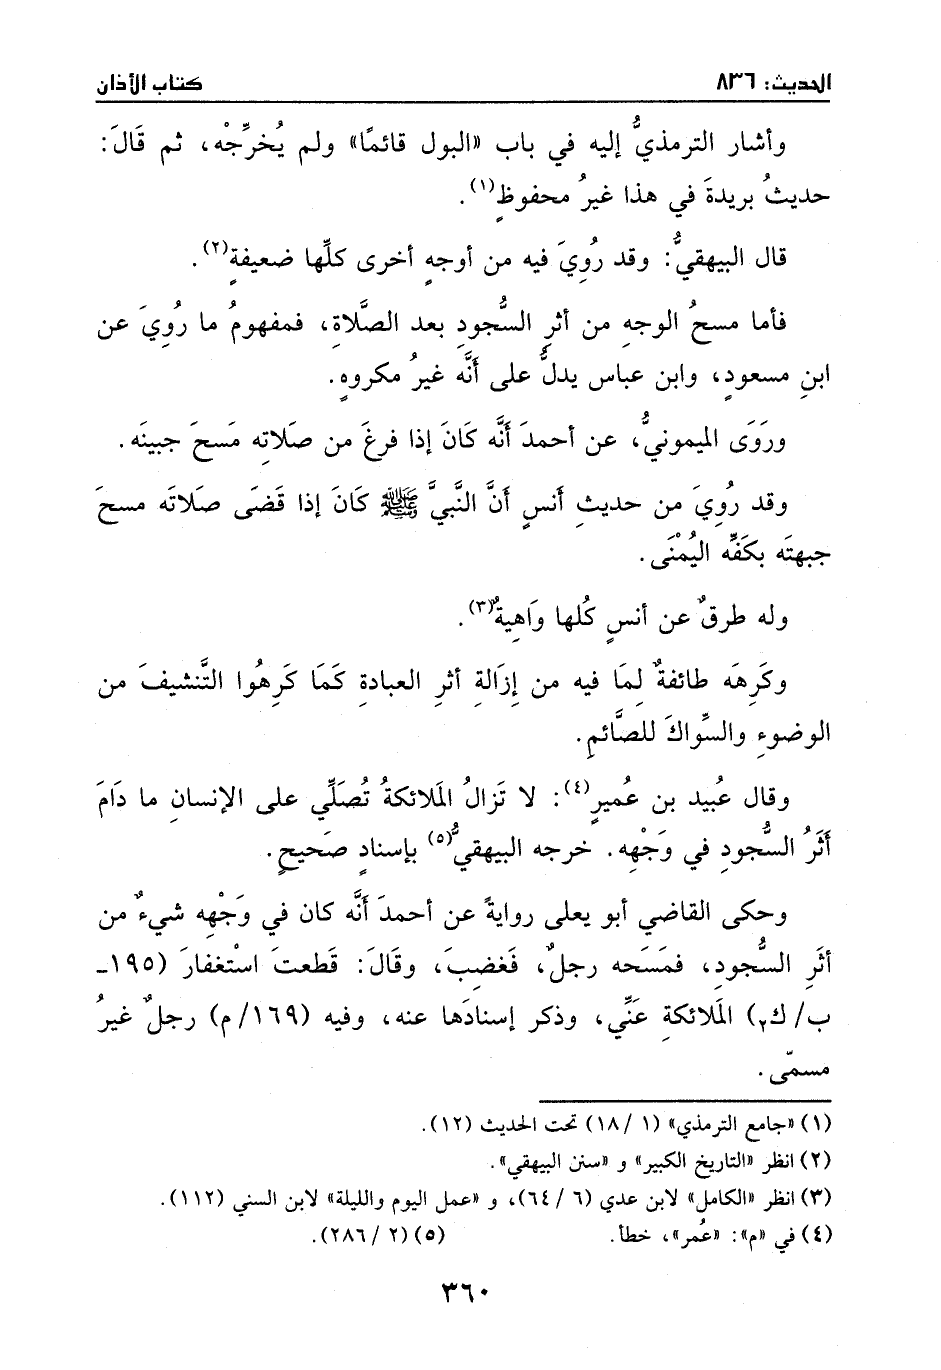 الحديث: ٨٣٦ كتاب الأذان
وأشار الترمذيُّ إليه في باب «البول قائمًا» ولم يُخرِّجْه، ثم قَالَ:
حديثُ بريدةَ في هذا غيرُ محفوظٍ(١).
قال البيهقيُّ: وقد رُوِيَ فيه من أوجهٍ أخرى كلِّها ضعيفةٍ(٢).
فأما مسحُ الوجهِ من أثرِ السُّجودِ بعد الصَّلاةِ، فمفهومُ ما رُوِيَ عن
ابنِ مسعودٍ، وابن عباس يدلُّ على أَنَّه غيرُ مكروهٍ.
ورَوَى الميمونيُّ، عن أحمدَ أَنَّه كَانَ إذا فرغَ من صلَاتِه مَسحَ جبينَه.
وقد رُوِيَ من حديثِ أَنسٍ أَنَّ النَّبيَّ ﷺ كَانَ إذا قَضَى صلَاتَه مسحَ
جبهتَه بكَفِّه اليُمْنَى.
وله طرقٌ عن أنسٍ كُلها وَاهِيةٌ(٣).
وكَرِهَه طائفةٌ لِمَا فيه من إِزَالَةِ أثرِ العبادةِ كَمَا كَرِهُوا التَّنشيفَ من
الوضوءِ والسِّواكَ للصَّائمِ.
وقال عُبيد بن عُميرٍ(٤): لا تَزَالُ المَلائكةُ تُصَلِّي على الإنسانِ ما دَامَ
أَثَرُ السُّجودِ في وَجْهِه. خرجه البيهقيُّ(٥) بإسنادٍ صَحيحٍ.
وحكى القاضي أبو يعلى روايةً عن أحمدَ أَنَّه كان في وَجْهِه شيءٌ من
أثَرِ السُّجودِ، فمَسَحه رجلٌ، فَغضِبَ، وقَالَ: قَطعتَ استْغفارَ (١٩٥-
ب/ك٢) المَلائكةِ عَنِّي، وذكر إسنادَها عنه، وفيه (١٦٩/م) رجلٌ غيرُ
مسمّى.
(١) «جامع الترمذي» (١/ ١٨) تحت الحديث (١٢).
(٢) انظر «التاريخ الكبير» و «سنن البيهقي».
(٣) انظر «الكامل» لابن عدي (٦/ ٦٤)، و «عمل اليوم والليلة» لابن السني (١١٢).
(٤) في «م»: «عُمر»، خطأ. (٥) (٢/ ٢٨٦).
٣٦٠